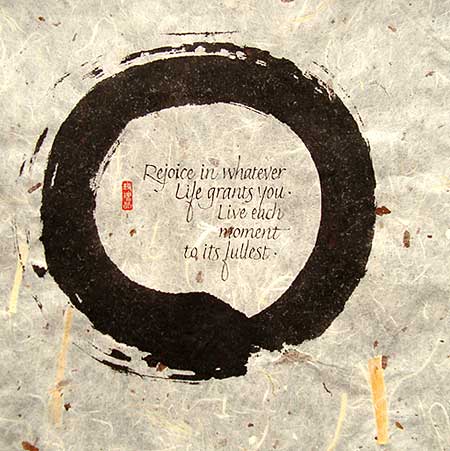 Rejoice in whatever
Life grants you.
Live each
moment
to its fullest.